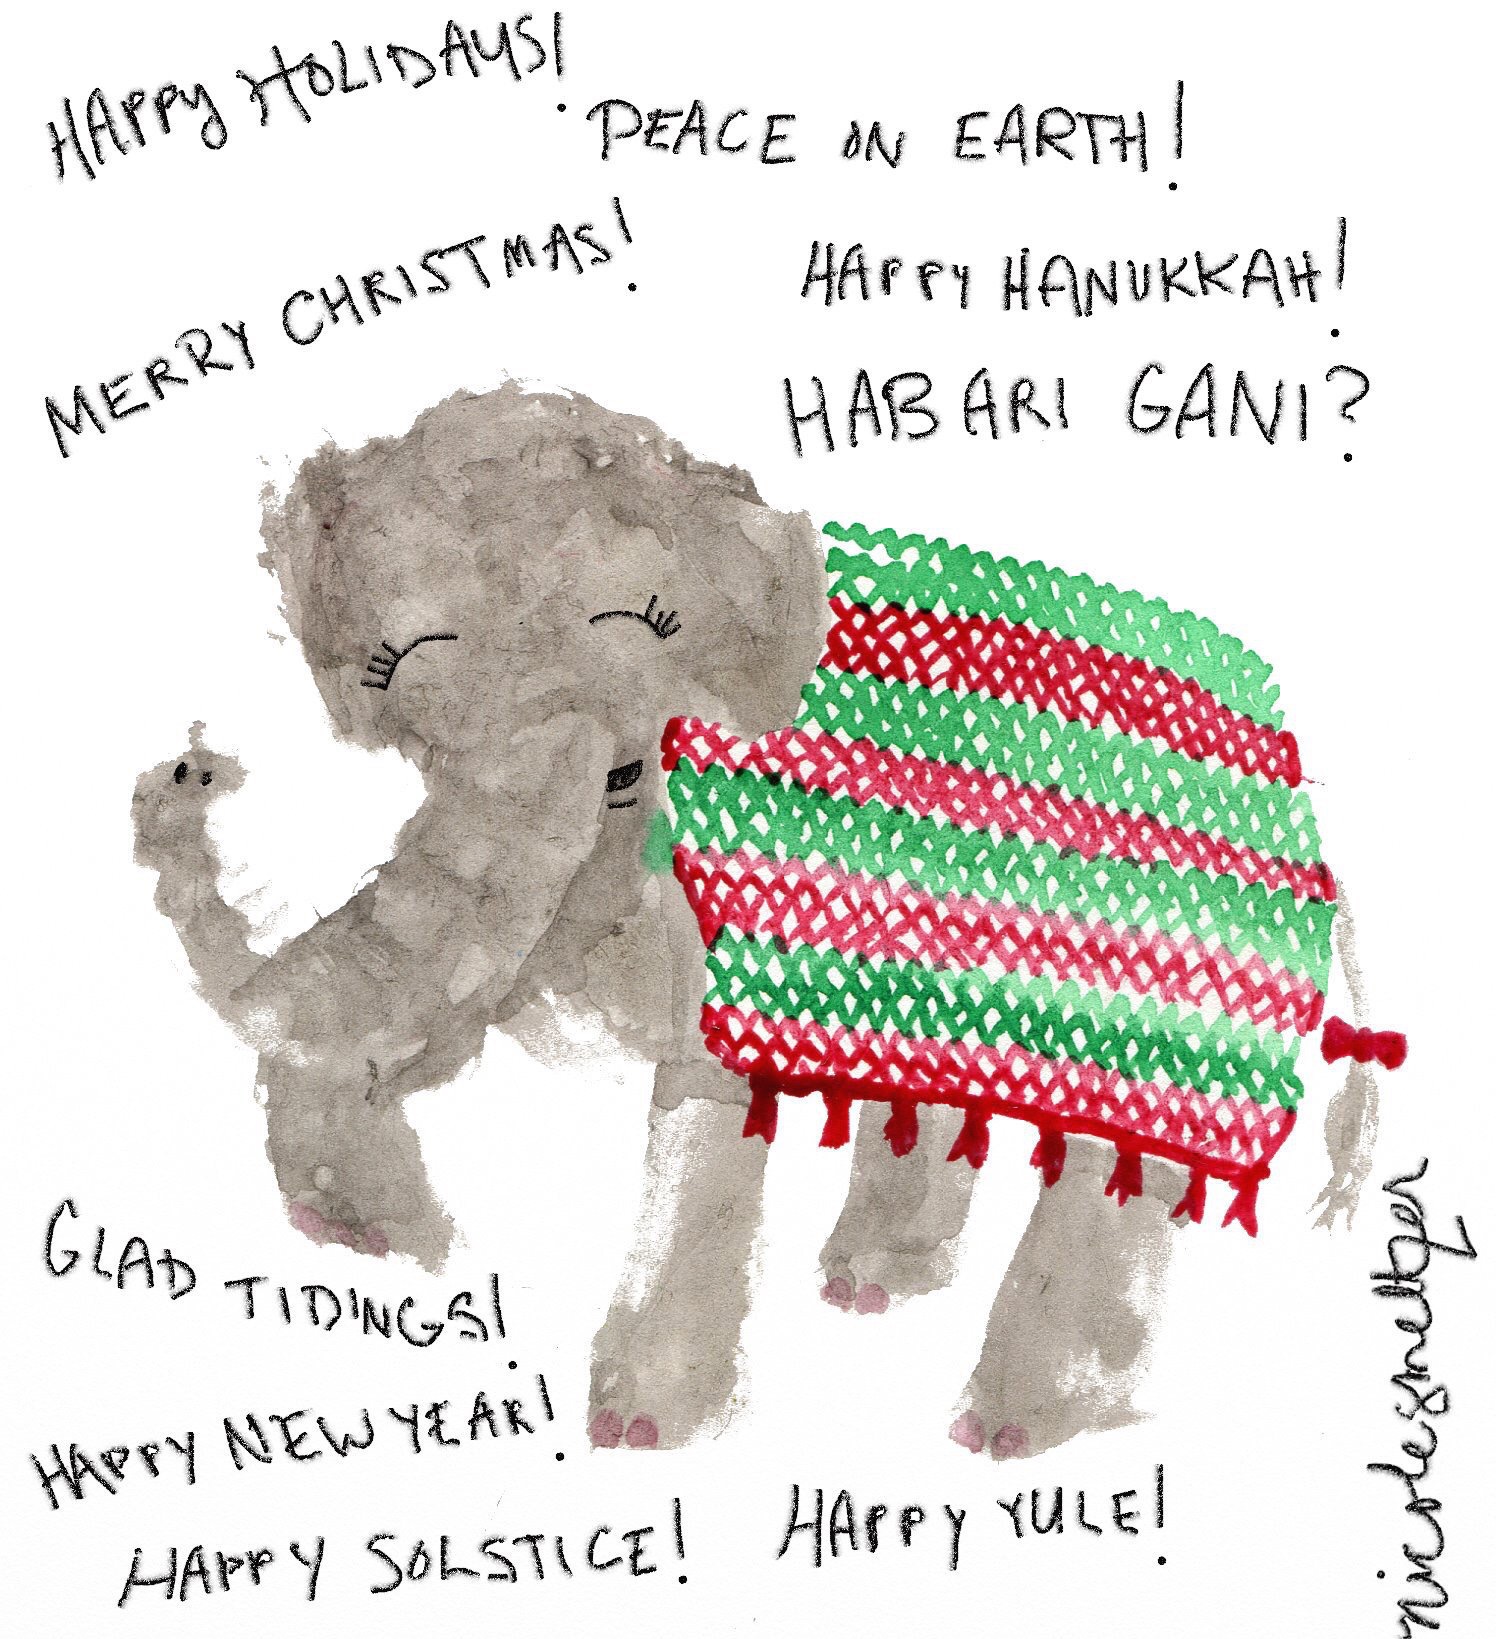 HAPPY HOLIDAYS!
PEACE ON EARTH!
MERRY CHRISTMAS!
HAPPY HANUKKAH!
HABARI GANI?
GLAD TIDINGS!
HAPPY NEW YEAR!
HAPPY SOLSTICE!
HAPPY YULE!
nicolesmeltzer